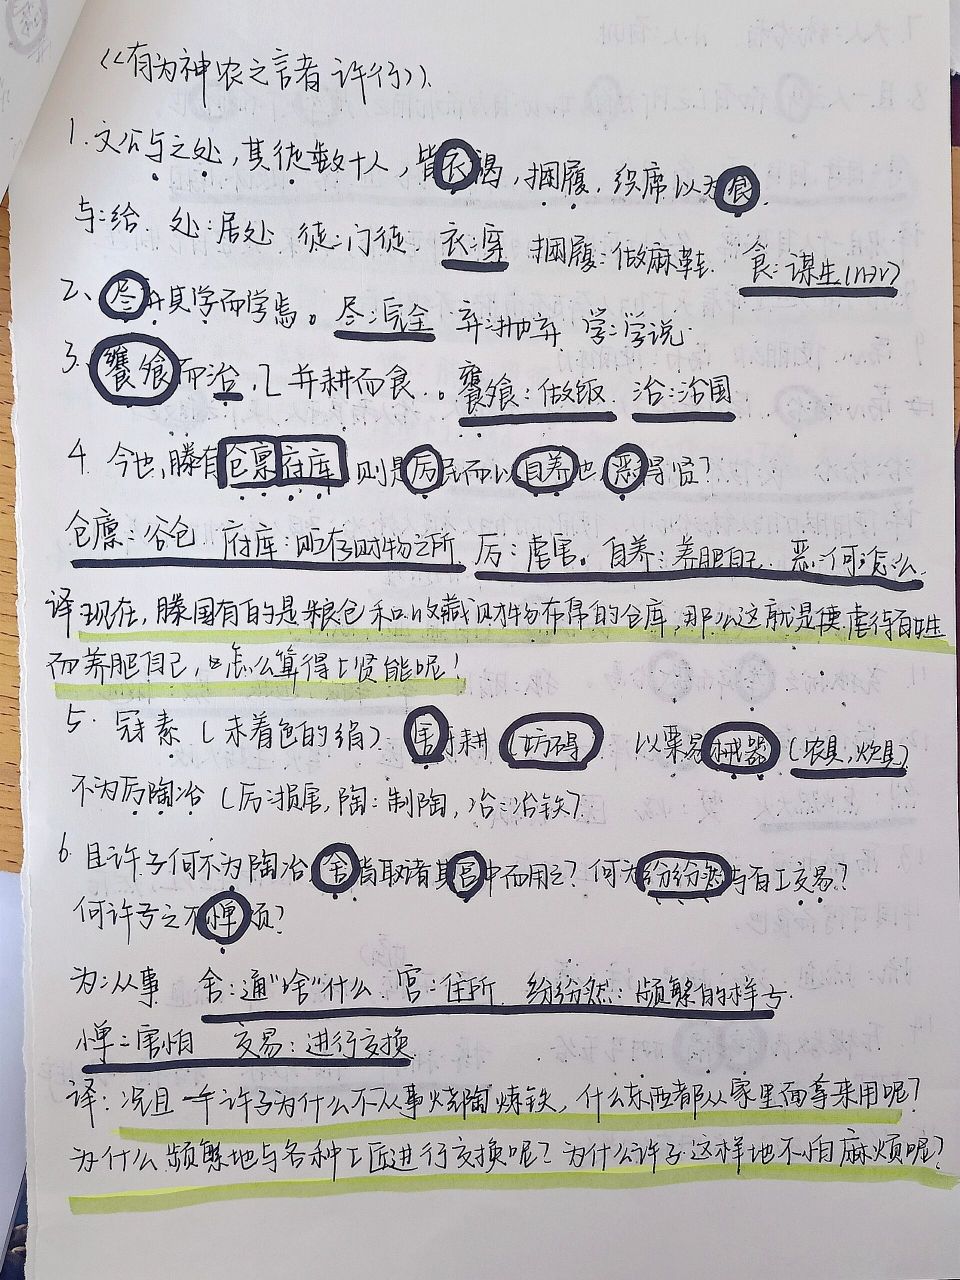 《有为神农之言者许行》
1.文公与之处，其徒数十人，皆衣褐，捆履，织席以为食。
与：给. 处：居处. 徒：门徒. 衣：穿 捆履：做麻鞋. 食：谋生(n→v)
2、尽弃其学而学焉。尽：完全 弃：抛弃 学：学说.
3、饔飧而治，( 并耕而食 。饔飧：做饭 治：治国
4. 今也，滕有仓廪府库 则是厉民而以自养也 恶得贤？
仓廪：谷仓 府库：贮存财物之所 厉：虐害。自养：养肥自己 恶：何，怎么
译：现在，滕国有的是粮仓和收藏财物布帛的仓库，那么这就是使虐待百姓
而养肥自己，又怎么算得上贤能呢！
5. 冠素(未着色的绢) 害于耕(妨碍) 以粟易械器(农具,炊具)
不为厉陶冶(厉：损害, 陶：制陶, 冶：冶铁)
6. 且许子何不为陶冶，舍皆取诸其宫中而用之？何为纷纷然与百工交易？
何许子之不惮烦？
为：从事 舍：通"啥"什么 宫：住所 纷纷然：频繁的样子.
惮：害怕 交易：进行交换
译：况且 许子为什么不从事烧陶炼铁，什么东西都从家里面拿来用呢？
为什么频繁地与各种工匠进行交换呢？为什么许子这样地不怕麻烦呢？